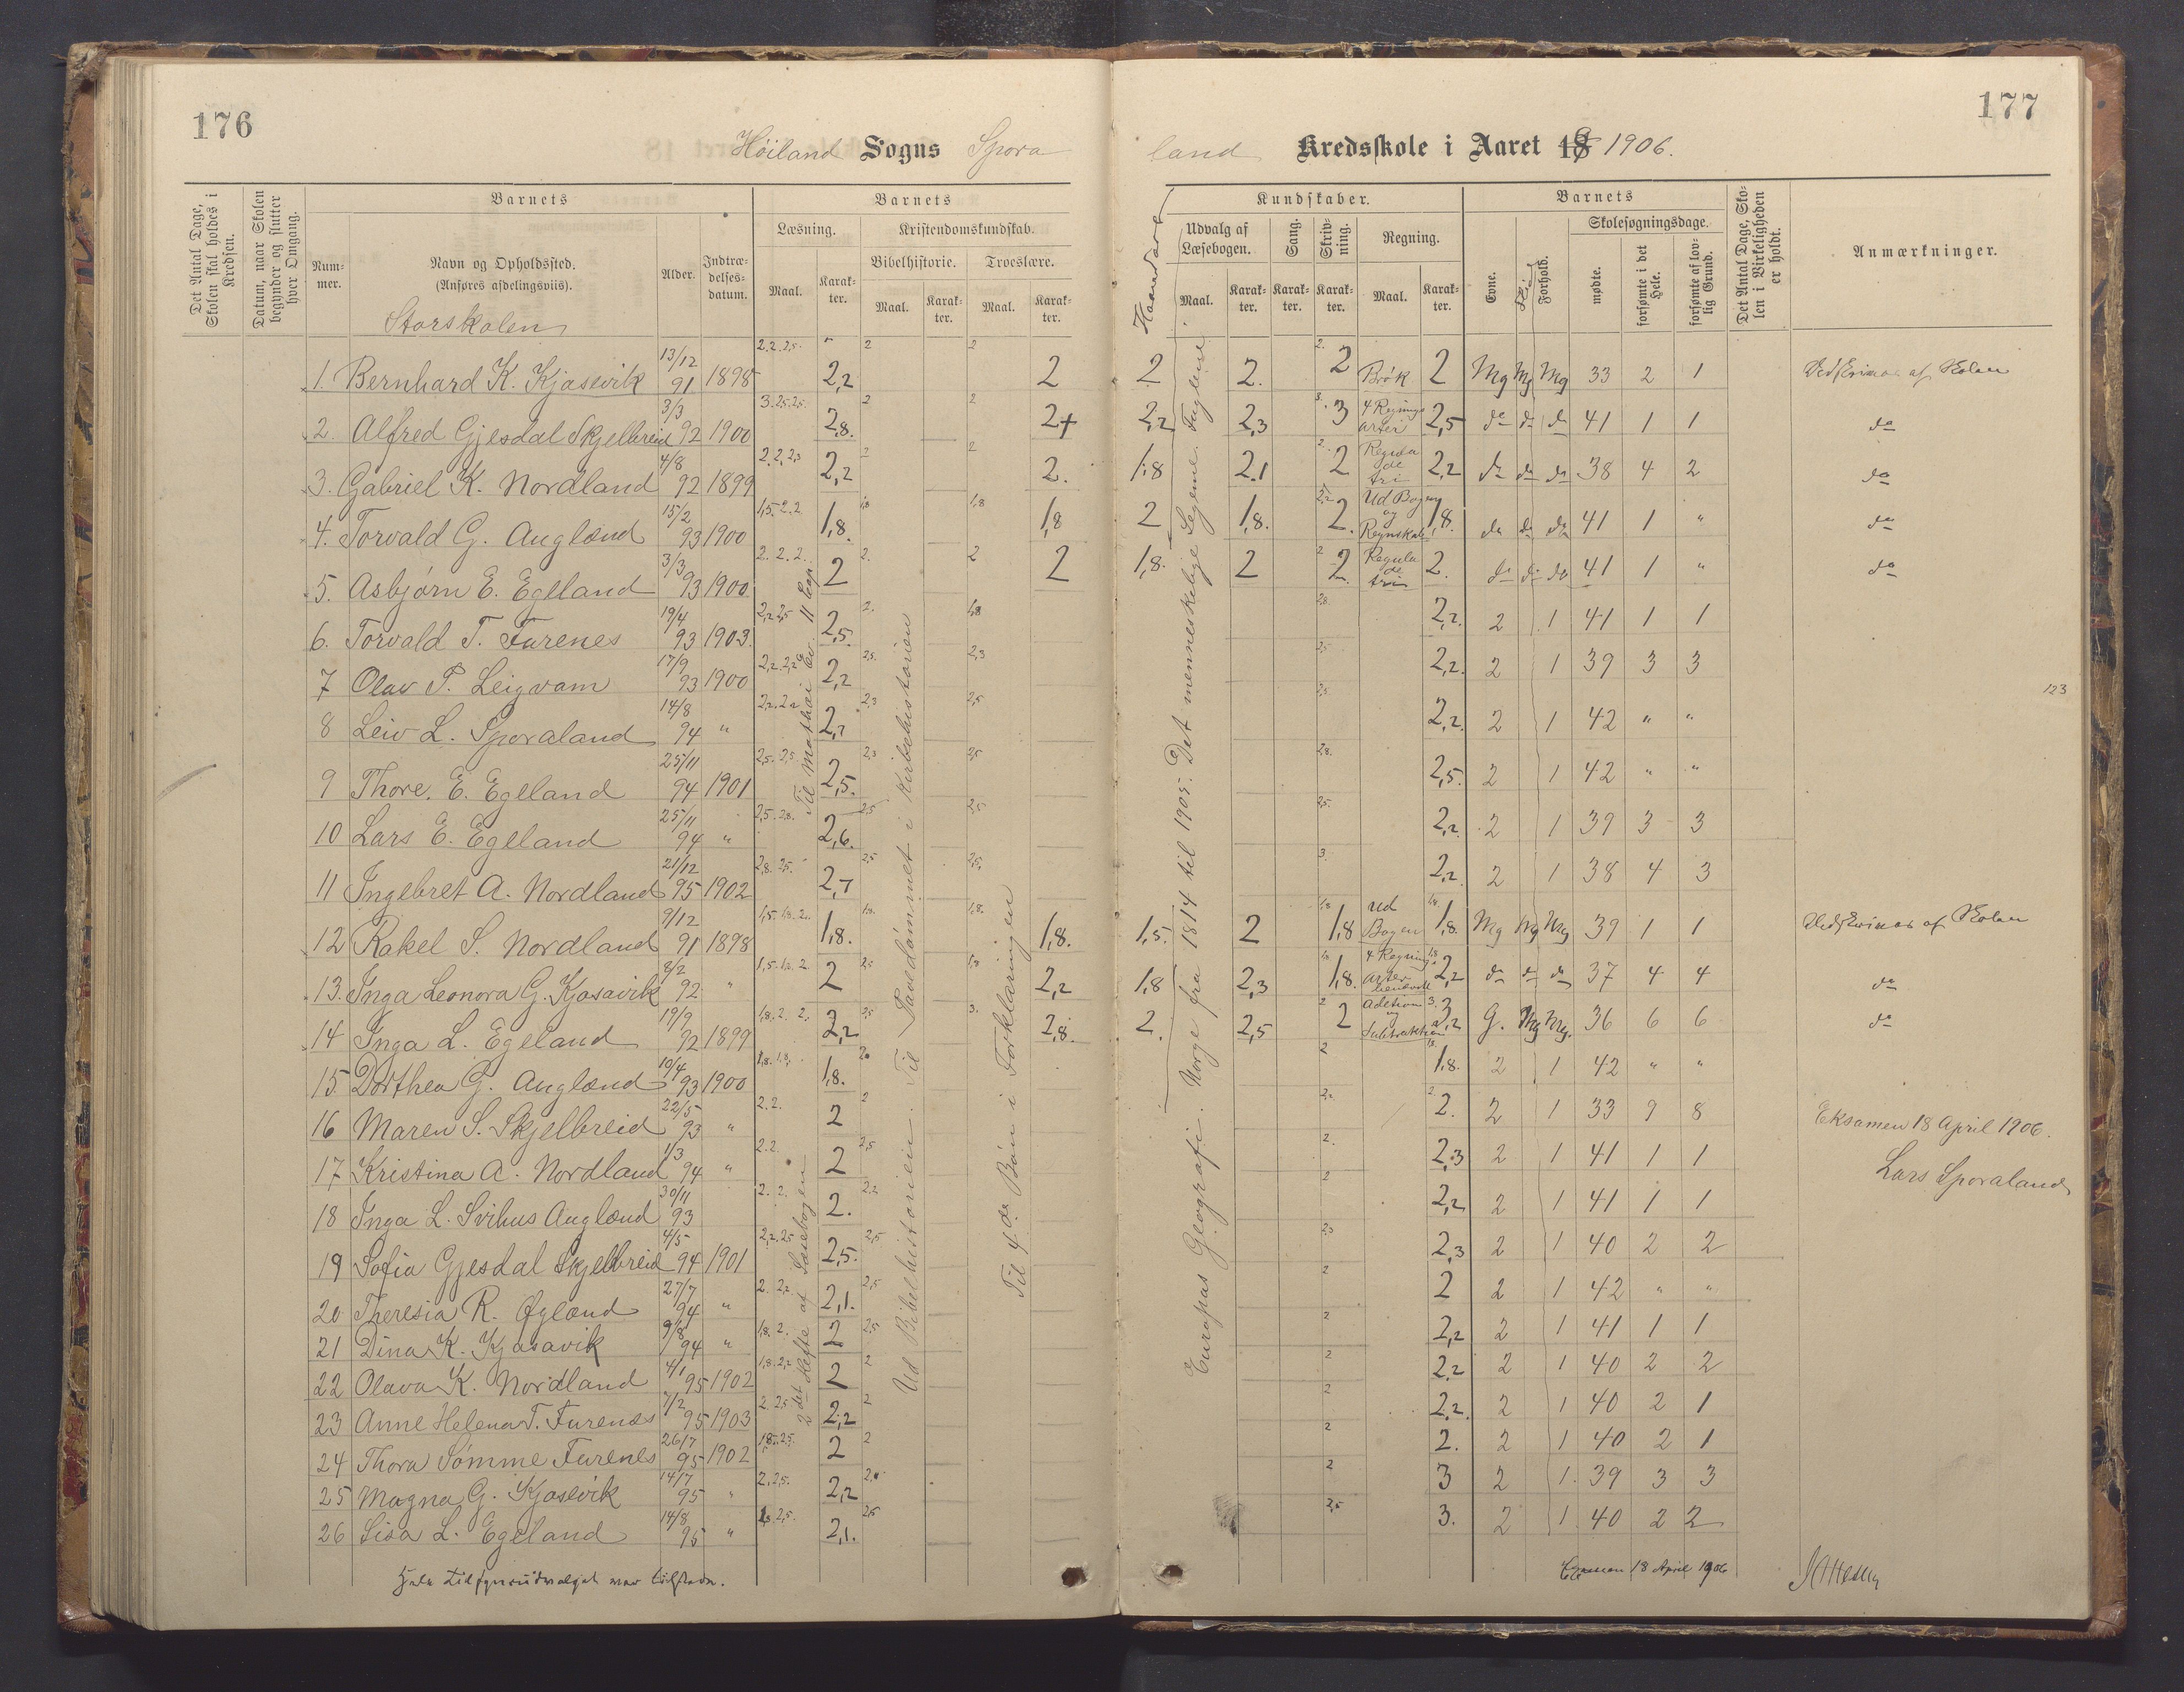 176
177
Høiland Sogns Spora
land Kredsskole i Aaret 18 1906.
Det Antal Dage, Skolen skal holdes i Kredsen.
Datum, naar Skolen begynder og slutter hver Omgang.
Barnets
Num-
mer.
Navn og Opholdssted.
(Anføres afdelingsviis).
Storskolen
Alder.
Indtræ-
delses-
datum.
Barnets
Læsning.
Maal.
Karak-
ter.
Kristendomskundskab.
Bibelhistorie.
Maal.
Karak-
ter.
Troeslære.
Maal.
Karak-
ter.
Kundskaber.
Udvalg af
Læsebogen.
Maal.
Karak-
ter.
Sang.
Karak-
ter.
Skriv-
ning.
Karak-
ter.
Regning.
Maal.
Karak-
ter.
Barnets
Evne.
Flid
Forhold.
Skolesøgningsdage.
mødte.
forsømte i det Hele.
forsømte af lov-
lig Grund.
Det Antal Dage, Sko-
len i Virkeligheden
er holdt.
Anmærkninger.
1. Bernhard K. Kjosevik 13/12 91 1898 2.2.2,5. 2,2 2 2 2 2 2. 2. 2 Brøk 2 Mg Mg Mg 33 2 1 af Skolen
2. Alfred Gjesdal Skjelbreid 3/3 92 1900 3.2,5.2,5. 2,8. 2 2 2+ 2,2 2,3 3. 3 4 Regningsarter 2,5 do do do 41 1 1 do
3. Gabriel K. Nordland 4/8 92 1899 2.2.2,3 2,2 2 2 2. 1,8 2.1 2. 2 Regula de tri 2,2 do do do 38 4 2 do
4. Torvald G. Augland 15/2 93 1900 1,5.2.2. 1,8. 1,8 1,8 1,8 2 1,8. 2,2 2. Ud Bogen og Regnskab 1,8. do do do 41 1 " do
5. Asbjørn E. Egeland 3/3 93 1900 2.2.2. 2 2. 2 2 1,8. 2 2 2. Regula de tri 2. do do do 41 1 " do
6. Torvald T. Furenes 19/4 93 1903. 2,2 2,5 2,5. 2. 1,8 2,8. 2,2. 2 1 41 1 1
7 Olav P. Leigvam 17/9 93 1900 2,2.2,2 2,2 2,5. 2,3 2,5 2,2. 2 1 39 3 3
8 Leiv L. Sporaland 14/8 94 " 2,2.2,2 2,2 2,3 2,5 2,5 2,2. 2 1 42 " "
9 Thore. E. Egeland 25/11 94 1901 2,5.2,5. 2,5. 2,3 2,5 2,8. 2,5. 2 1 42 " "
10 Lars E. Egeland 25/11 94 " 2,5.2,8. 2,6. 2,5 2,5 2,5. 2,2. 2 1 39 3 3
11 Ingebret A. Nordland 21/12 95 1902 2,8.2,5. 2,7 2,5 2,5. 3. 2,2. 2 1 38 4 3
12 Rakel S. Nordland 9/12 91 1898 1,5.1,8.2. 1,8. 1,8. 1,8. 1,8. 1,5. 2 1,8 1,8 Ud Bogen 1,8. 1,8. Mg Mg Mg 39 1 1 af Skolen
13. Inga Leonora G. Kjosavik 8/2 92 " 1,5.1,8.2. 2 2,5 1,8 2,2 1,8 2,3 1,8 1,8. 4 Regningsarter 1,8 2,2 do do do 37 4 4 do
14 Inga L. Egeland 19/9 92 1899 1,8.2.2. 2,2 2,5 3. 2,8. 2. 2,5 2 2 Adetion og Subtraktion 3. 3,2 G. Mg Mg. 36 6 6 do
15. Dorthea G. Augland 10/4 93 1900 1,8.1,8. 1,8. 2 2 1,8. 1,8. 2 1 42 " "
16 Maren S. Skjelbreid 22/5 93 " 2.2. 2 2 2,2 2. 2. 2 1 33 9 8
17 Kristina A. Nordland 1/3 94 " 2.2. 2 2,5 2. 2,3 2 1 41 1 1
18 Inga L. Svihus Augland 30/11 93 2.2. 2. 2,2 2 2,2 2 1 41 1 1
19 Sofia Gjesdal Skjelbreid 4/5 94 1901 2,2.2,5 2,5. 2,5 2,3 2,3 2 1 40 2 2
20 Theresia R. Øgland 27/7 94 " 2.2,2 2,1. 2,5 2 2 2 1 42 " "
21 Dina K. Kjosavik 9/8 94 " 1,8.2. 2 2,5 2 2,2 2 1 41 1 1
22 Olava K. Nordland 4/1 95 1902 1,8.2,2 2 2 2 2,2 2 1 40 2 2
23 Anne Helena T. Furenes 7/2 95 1903 2.2,5 2,2 2 2 2,2. 2 1 40 2 1
24 Thora Sømme Furenes 26/7 95 1902 1,8.2,5. 2 2 2 2. 2 1 40 2 1
25 Magna G. Kjosevik 14/7 95 " 2.2,5. 2,2 2 3 2 1. 39 3 3
26 Lisa L. Egeland 14/8 95 " 2,5. 2,1. 2,5 2,5 3. 2 1. 40 2 2
Til Mathæi Ev. 11 Cap
2det Hefte af Læsebogen
Ud Bibelhistorien. Til Pavedømmet i Kirkehistorien
Til 4de Bøn i Forklaringen
Haandarb.
Europas Geografi. Norge fra 1814 til 1905. Det menneskelige Legeme. Fuglene.
123
Eksamen 18 April 1906.
Lars Sporaland
Hele Tilsynsudvalget var tilstede.
Eksamen 18 April 1906